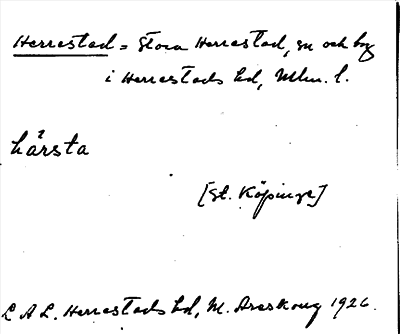 Herrestad = Stora Herrestad, sn och by
i Herrestads hd, Mlm. l.
härsta
[St. Köpinge]
L A L. Herrestads hd, M. Areskoug 1926.